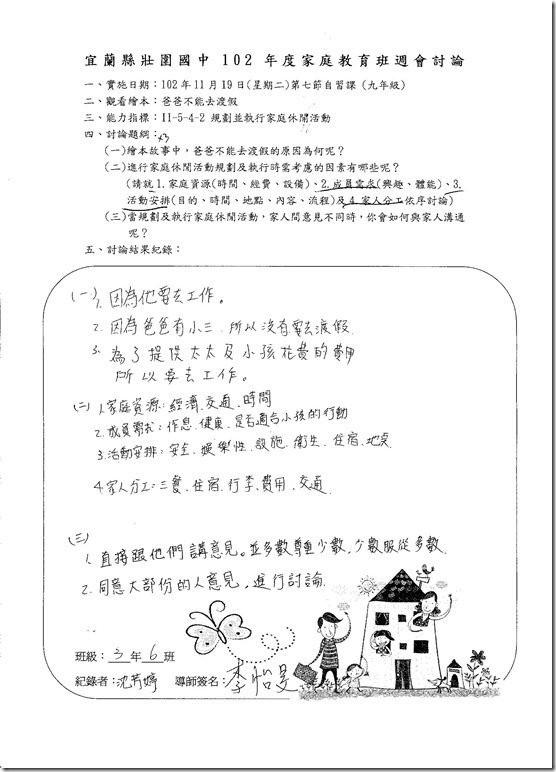 宜蘭縣壯圍國中 102 年度家庭教育班週會討論
一、實施日期：102年11月19日(星期二)第七節自習課(九年級)
二、觀看繪本：爸爸不能去渡假
三、能力指標：II-5-4-2 規劃並執行家庭休閒活動
四、討論題綱：
(一)繪本故事中，爸爸不能去渡假的原因為何呢？
(二)進行家庭休閒活動規劃及執行時需考慮的因素有哪些呢？
(請就1.家庭資源(時間、經費、設備)、2.成員需求(興趣、體能)、3.
活動安排(目的、時間、地點、內容、流程)及4.家人分工依序討論)
(三)當規劃及執行家庭休閒活動，家人間意見不同時，你會如何與家人溝通
呢？
五、討論結果紀錄：
(一) 1. 因為他要去工作。
2. 因為爸爸有小三，所以沒有要去渡假
3. 為了提供太太及小孩花費的費用
所以要去工作。
(二) 1.家庭資源：經濟、交通、時間
2.成員需求：作息、健康、是否適合小孩的行動
3.活動安排：安全、娛樂性、設施、衛生、住宿、地點
4.家人分工：三餐、住宿、行李、費用、交通
(三)
1. 直接跟他們講意見。並多數尊重少數，少數服從多數
2. 同意大部份的人意見，進行討論
班級：3年6班
紀錄者：沈芳婷 導師簽名：李怡旻